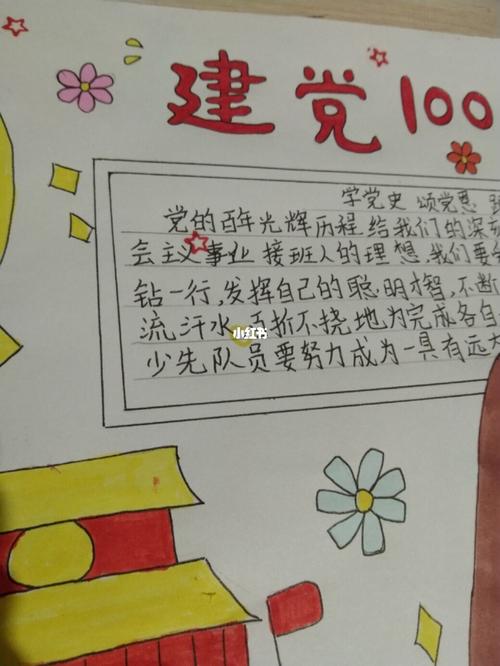 建党100
学党史 颂党恩
党的百年光辉历程给我们的深
会主义事业接班人的理想.我们要
钻一行,发挥自己的聪明才智,不断
流汗水 折不挠地为完成各自
少先队员要努力成为一具有远大
小红书